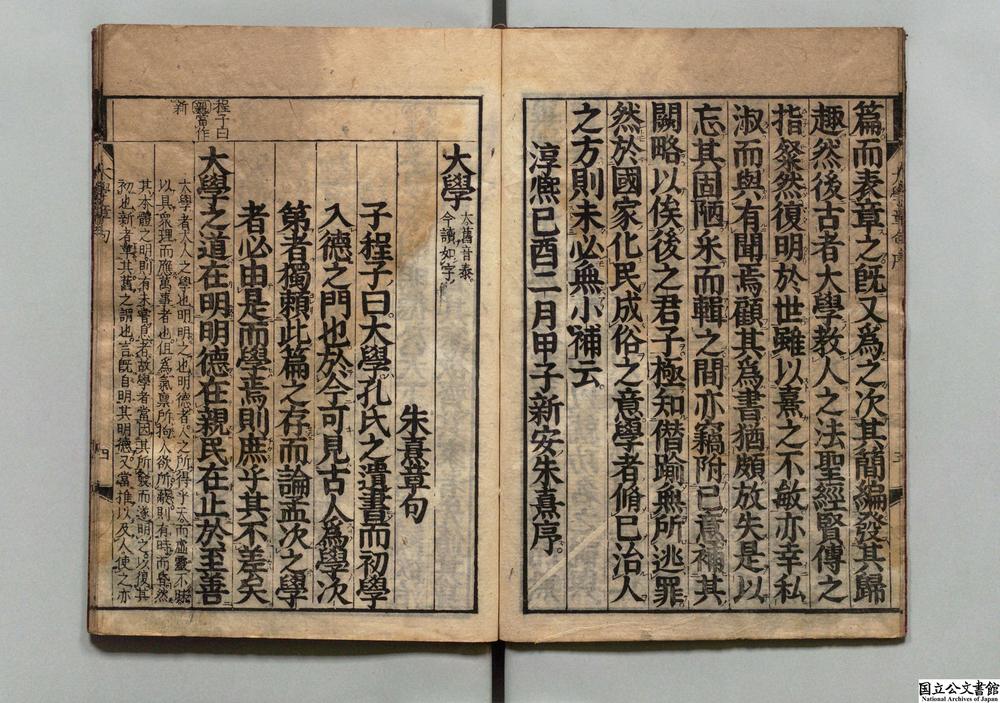 篇而表章之旣又爲之次其簡編發其歸
趣然後古者大學教人之法聖經賢傳之
指粲然復明於世雖以熹之不敏亦幸私
淑而與有聞焉顧其爲書猶頗放失是以
忘其固陋采而輯之間亦竊附己意補其
闕略以俟後之君子極知僭踰無所逃罪
然於國家化民成俗之意學者脩己治人
之方則未必無小補云
淳熈己酉二月甲子新安朱熹序
大學
大舊音泰
今讀如字
朱熹章句
子程子曰大學孔氏之遺書而初學
入德之門也於今可見古人爲學次
第者獨賴此篇之存而論孟次之學
者必由是而學焉則庶乎其不差矣
程子曰
親當作
新
大學之道在明明德在親民在止於至善
大學者大人之學也明明之也明德者人之所得乎天而虛靈不昧
以具衆理而應萬事者也但爲氣稟所拘人欲所蔽則有時而昏然
其本體之明則有未嘗息者故學者當因其所發而遂明之以復其
初也新者革其舊之謂也言既自明其明德又當推以及人使之亦
四
国立公文書館
National Archives of Japan